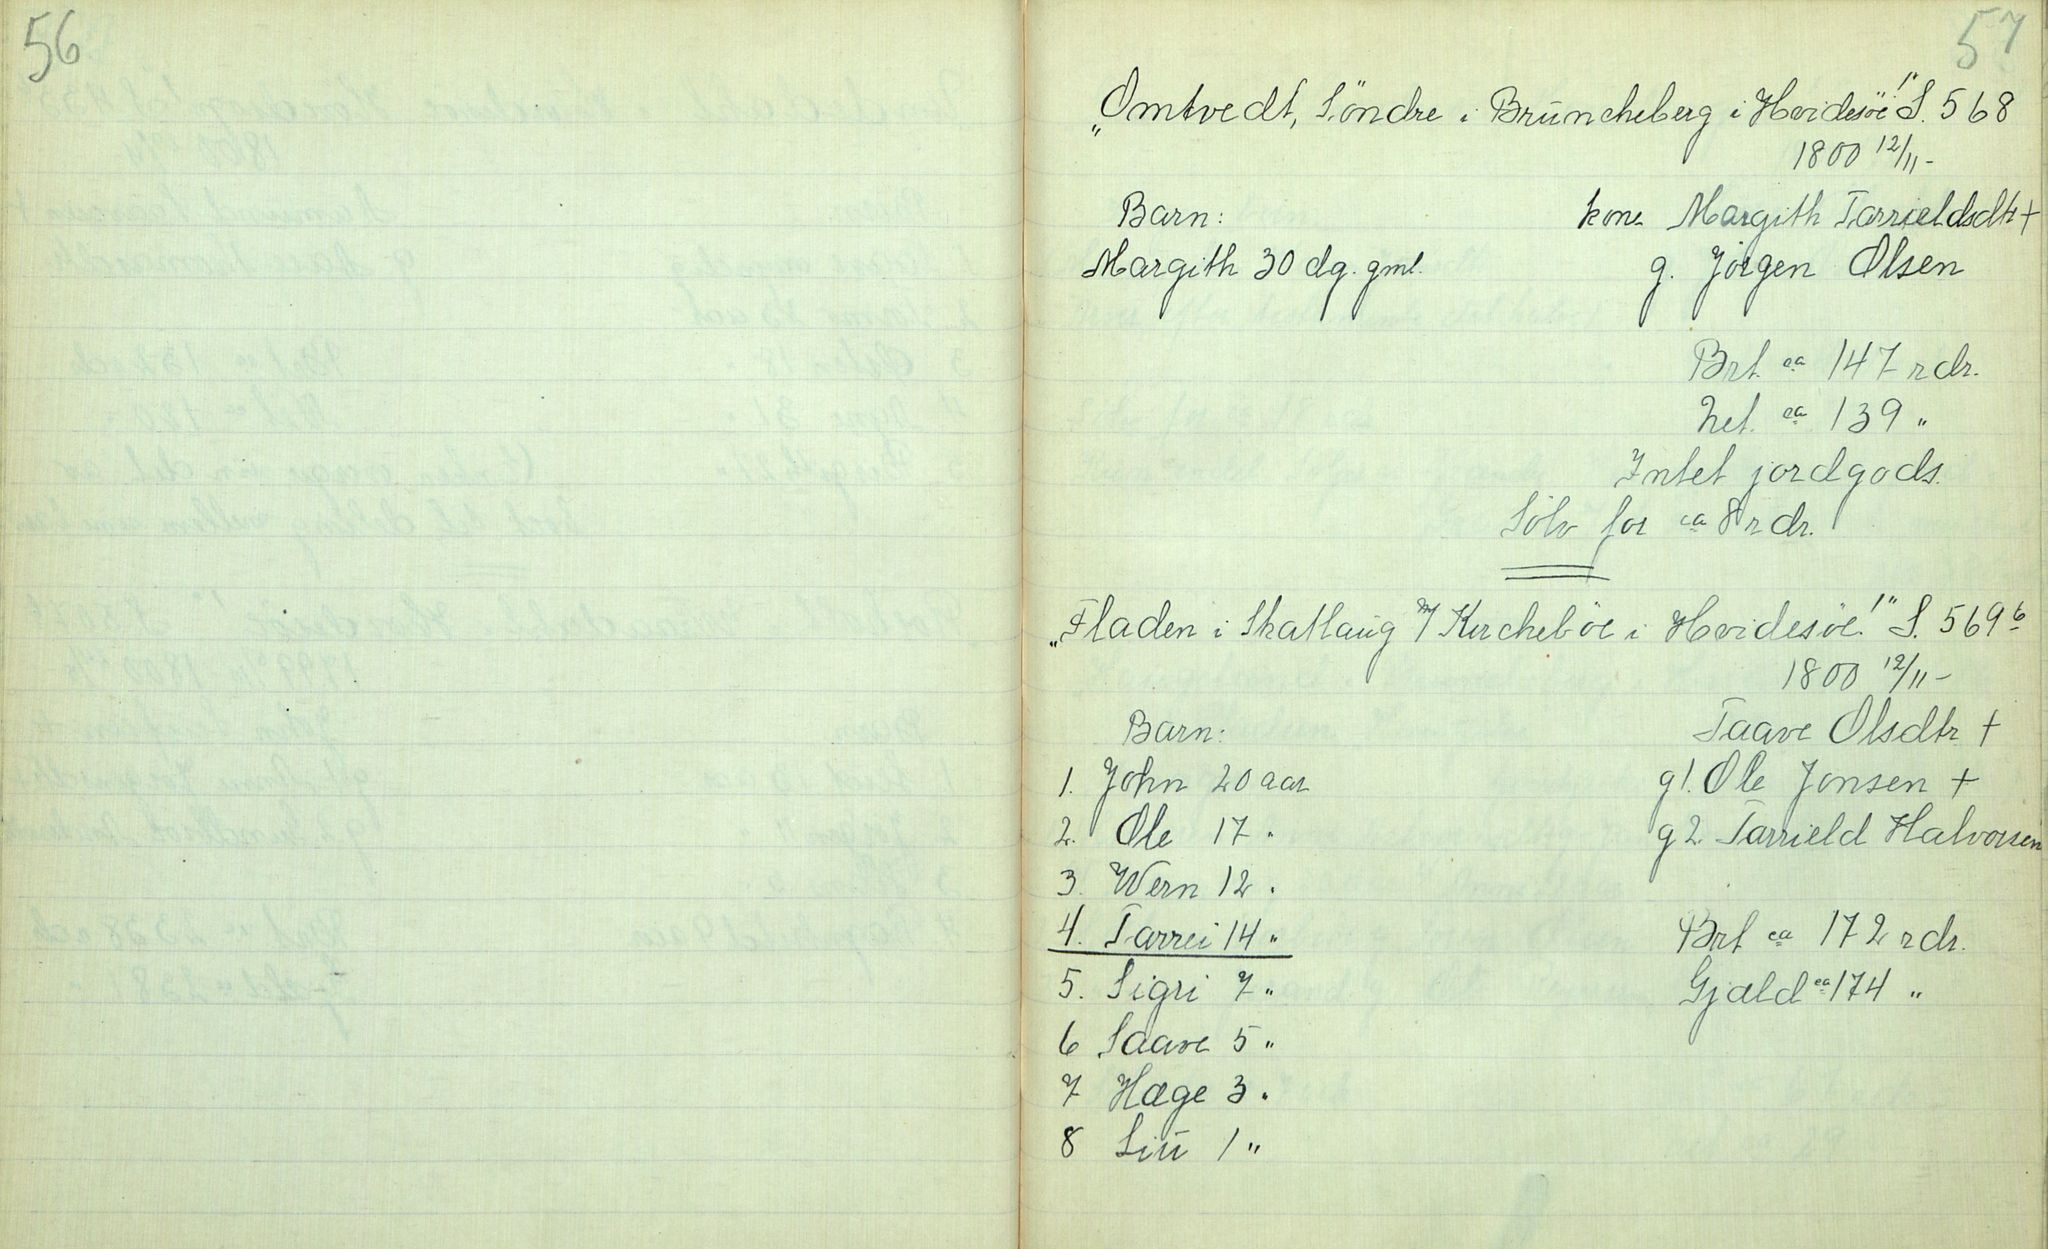 56
57
"Omtvedt, Söndre i Brüncheberg i Hvidesöe!" S. 568
1800 12/11-
Barn: kone Margith Tarrieldsdtr +
Margith 30 dg. gml. g. Jörgen Olsen
Brt. ca 147 rdr.
Net. ca 139 "
Intet jordgods.
Sölv for ca 8 rdr.
"Fladen i Skatlaug Kircheböe i Hvidesöe!" S. 569 b
1800 12/11-
Barn: Taave Olsdtr +
1. John 20 aar g1. Ole Jonsen +
2. Ole 17 " g2 Tarrield Halvorsen
3. Wern 12 "
4. Tarrei 14 " Brt ca 172 rdr.
5. Sigri 7 " Gjæld ca 174 "
6 Saave 5 "
7 Hæge 3 "
8 Liü 1 "